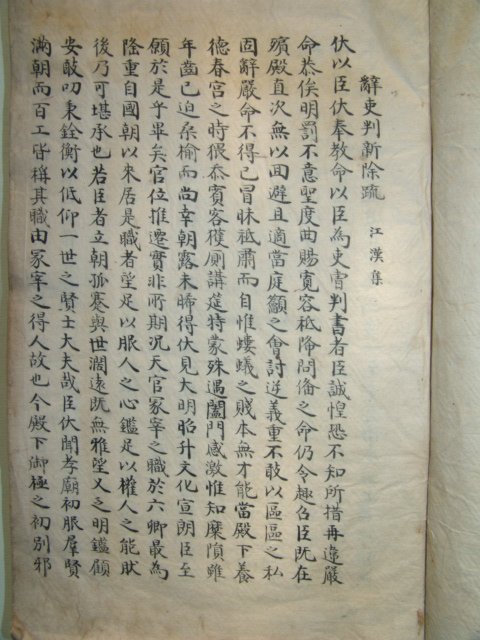 辭吏判新除疏 江漢集
伏以臣伏奉敎命以臣為吏曺判書者臣誠惶恐不知所措再違嚴
命恭俟明罰不意聖度曲賜寬容祗降問偹之命仍令趣召臣既在
殯殿直次無以回避且適當庭籲之會討逆義重不敢以區區之私
固辭嚴命不得已冒昧祗肅而自惟螻蟻之賤本無才能當殿下養
德春宮之時猥忝賓客穫厠講筵特蒙殊遇闔門感激惟知糜隕雖
年齒已迫桑榆而尚幸朝露未晞得伏見大明昭升文化宣朗臣至
願於是乎畢矣官位推遷實非所期况天官冢宰之職於六卿最為
隆重自國朝以來居是職者望足以服人之心鑑足以權人之能然
後乃可堪承也若臣者立朝孤蹇與世濶遠既無雅望又乏明鑑顧
安敢叨秉銓衡以低仰一世之賢士大夫哉臣伏聞孝廟初服羣賢
滿朝而百工皆稱其職由冢宰之得人故也今殿下御極之初別邪